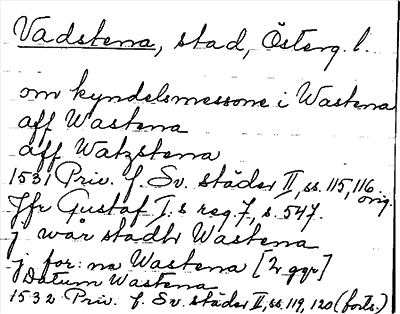 Vadstena, stad, Österg. l.
om kyndelsmessone i Wastena
aff Wastena
aff Watzstena
1531 Priv. f. Sv. städer II, ss. 115, 116 orig.
Jfr Gustaf I:s reg. 7, s. 547.
j wår stadh Wastena
j for:na Wastena [2 ggr]
Datum Wastena
1532 Priv. f. Sv. städer II, ss. 119, 120 (forts.)